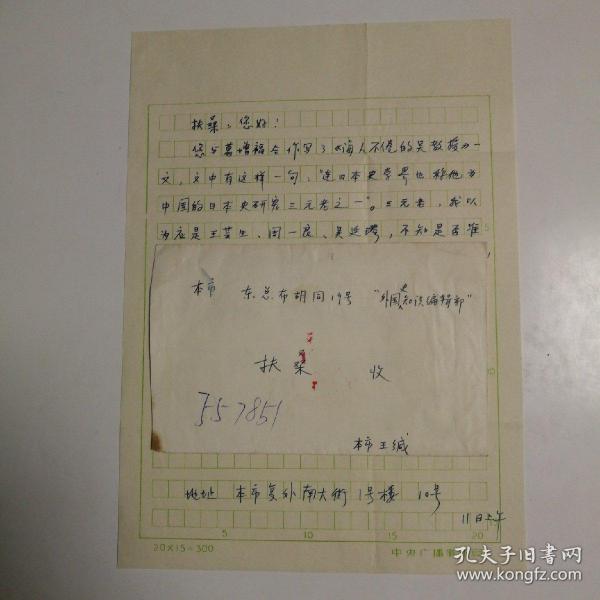 扶桑,您好!
您与葛增福合作写了《诲人不倦的吴教授》一
文,文中有这样一句,"连日本史学界也称他为
中国的日本史研究三元老之一"。三元老,我以
为应是王芸生、周一良、吴廷璆,不知是否准
本市 东总布胡同19号 "外国史知识编辑部"
扶桑 收
557851
本市王缄
地址 本市复外南大街1号楼 10号
11日上午
5 10 15 20
20×15=300
中央广播
孔夫子旧书网
www.kongfz.com